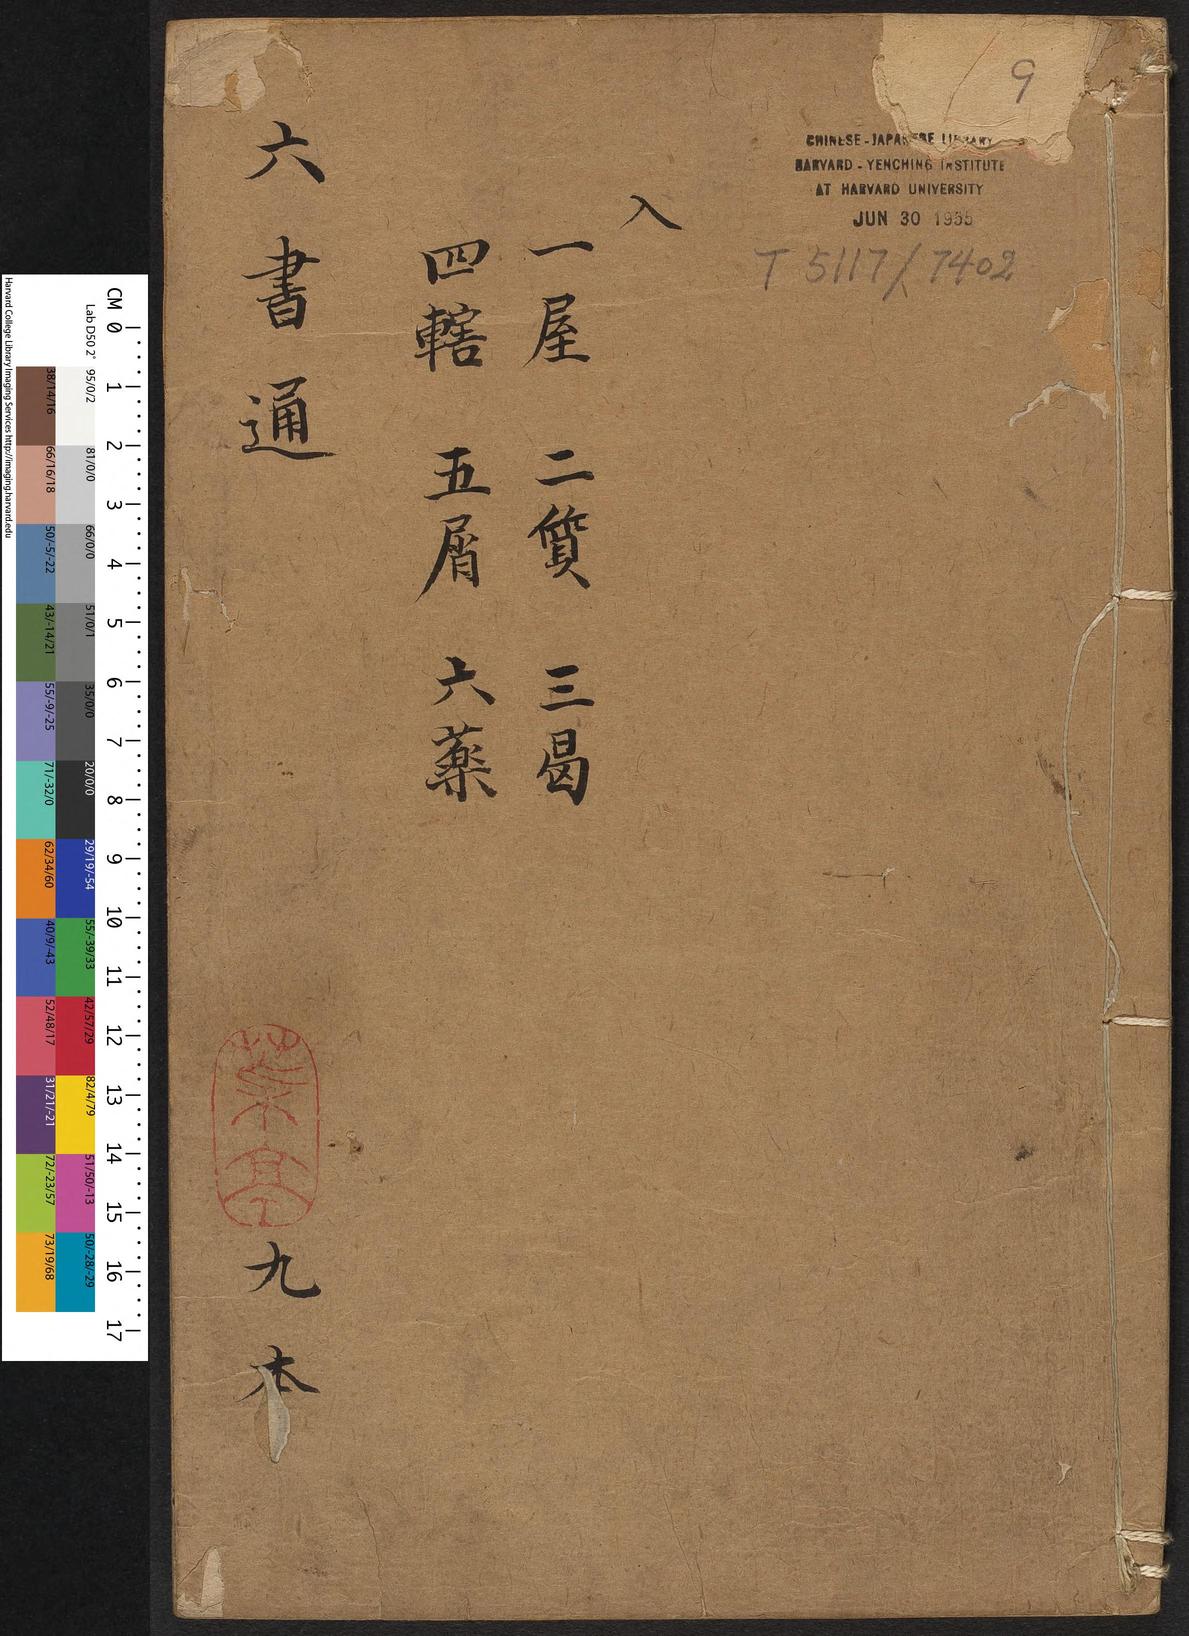 9
CHINESE-JAPANESE LIBRARY
HARVARD-YENCHING INSTITUTE
AT HARVARD UNIVERSITY
JUN 30 1955
T 5117/7402
入
一屋 二質 三曷
四轄 五屑 六藥
六書通
九本
CM 0 1 2 3 4 5 6 7 8 9 10 11 12 13 14 15 16 17
Lab D50 2°
95/0/2
81/0/0
66/0/0
51/0/1
35/0/0
20/0/0
29/19/-54
55/-39/33
42/57/29
82/4/79
51/50/-13
50/-28/-29
38/14/16
66/16/18
50/-5/-22
43/-14/21
55/-9/-25
71/-32/0
62/34/60
40/9/-43
52/48/17
31/21/-21
72/-23/57
73/19/68
Harvard College Library Imaging Services http://imaging.harvard.edu